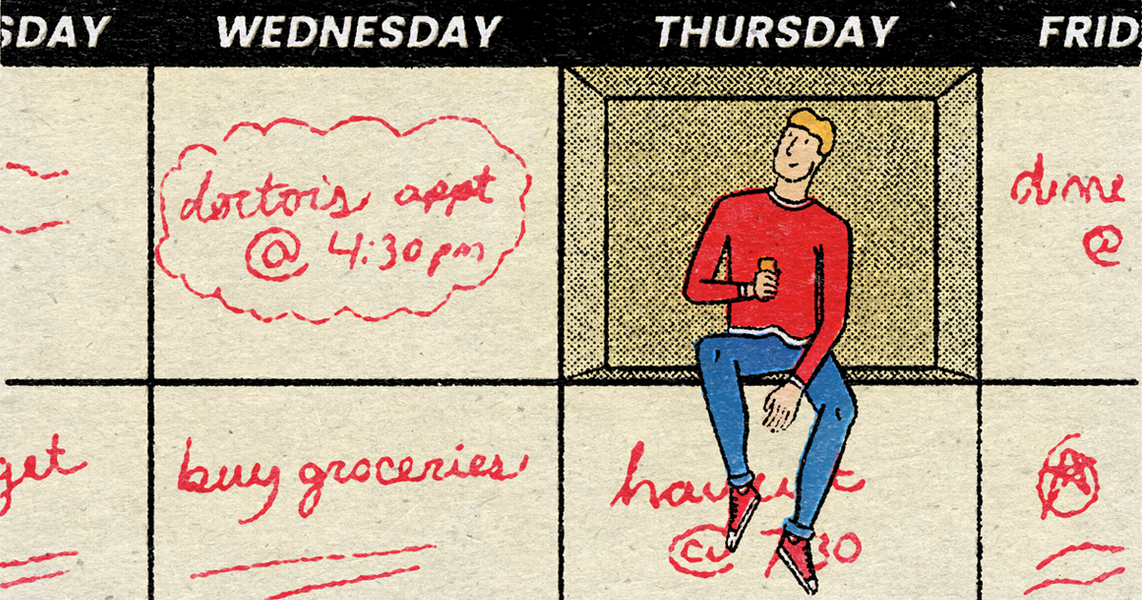 SDAY WEDNESDAY THURSDAY FRID
doctor's appt
@ 4:30pm
dinne
@
get
buy groceries
@ 7:30